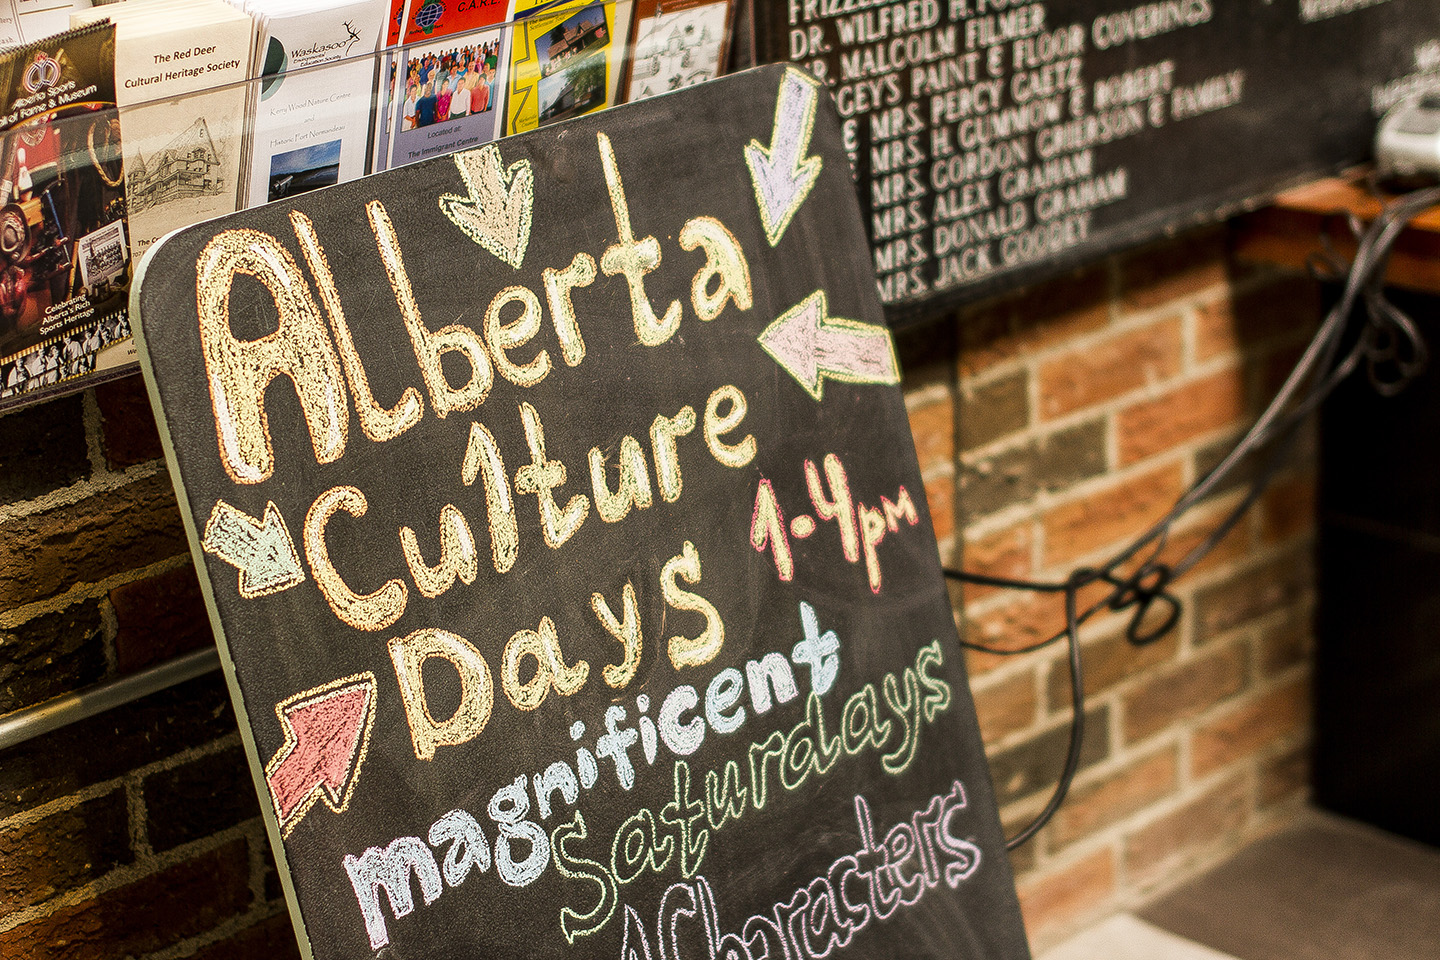 Alberta
Culture
Days
1-4pm
magnificent
Saturdays
Characters
Alberta Sports
Hall of Fame & Museum
Celebrating
Alberta's Rich
Sports Heritage
The Red Deer
Cultural Heritage Society
Waskasoo
Environmental
Education Society
Kerry Wood Nature Centre
and
Historic Fort Normandeau
C.A.R.E.
Located at:
The Immigrant Centre
DR. WILFRED H.
DR. MALCOLM FILMER
PAINT & FLOOR COVERINGS
MRS. PERCY GAETZ
MRS. H. GUMMOW & ROBERT
MRS. GORDON GRIERSON & FAMILY
MRS. ALEX GRAHAM
MRS. DONALD GRAHAM
MRS. JACK GOODEY